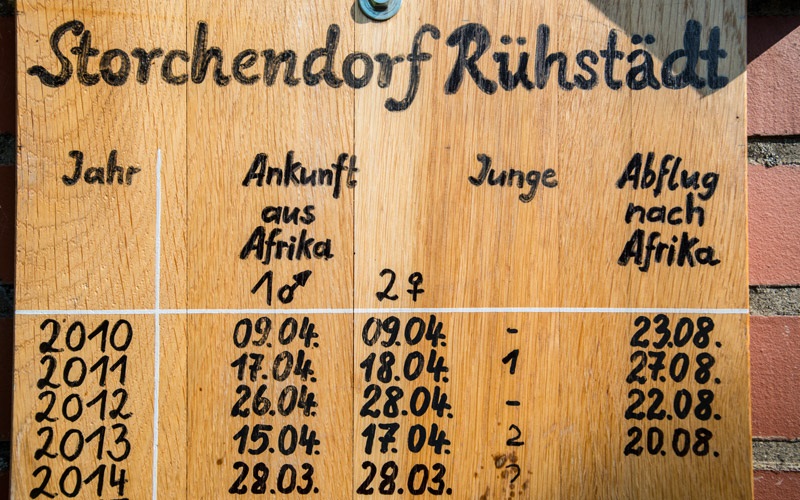 Storchendorf Rühstädt
Jahr Ankunft aus Afrika Junge Abflug nach Afrika
1♂ 2♀
2010 09.04. 09.04. - 23.08.
2011 17.04. 18.04. 1 27.08.
2012 26.04. 28.04. - 22.08.
2013 15.04. 17.04. 2 20.08.
2014 28.03. 28.03.